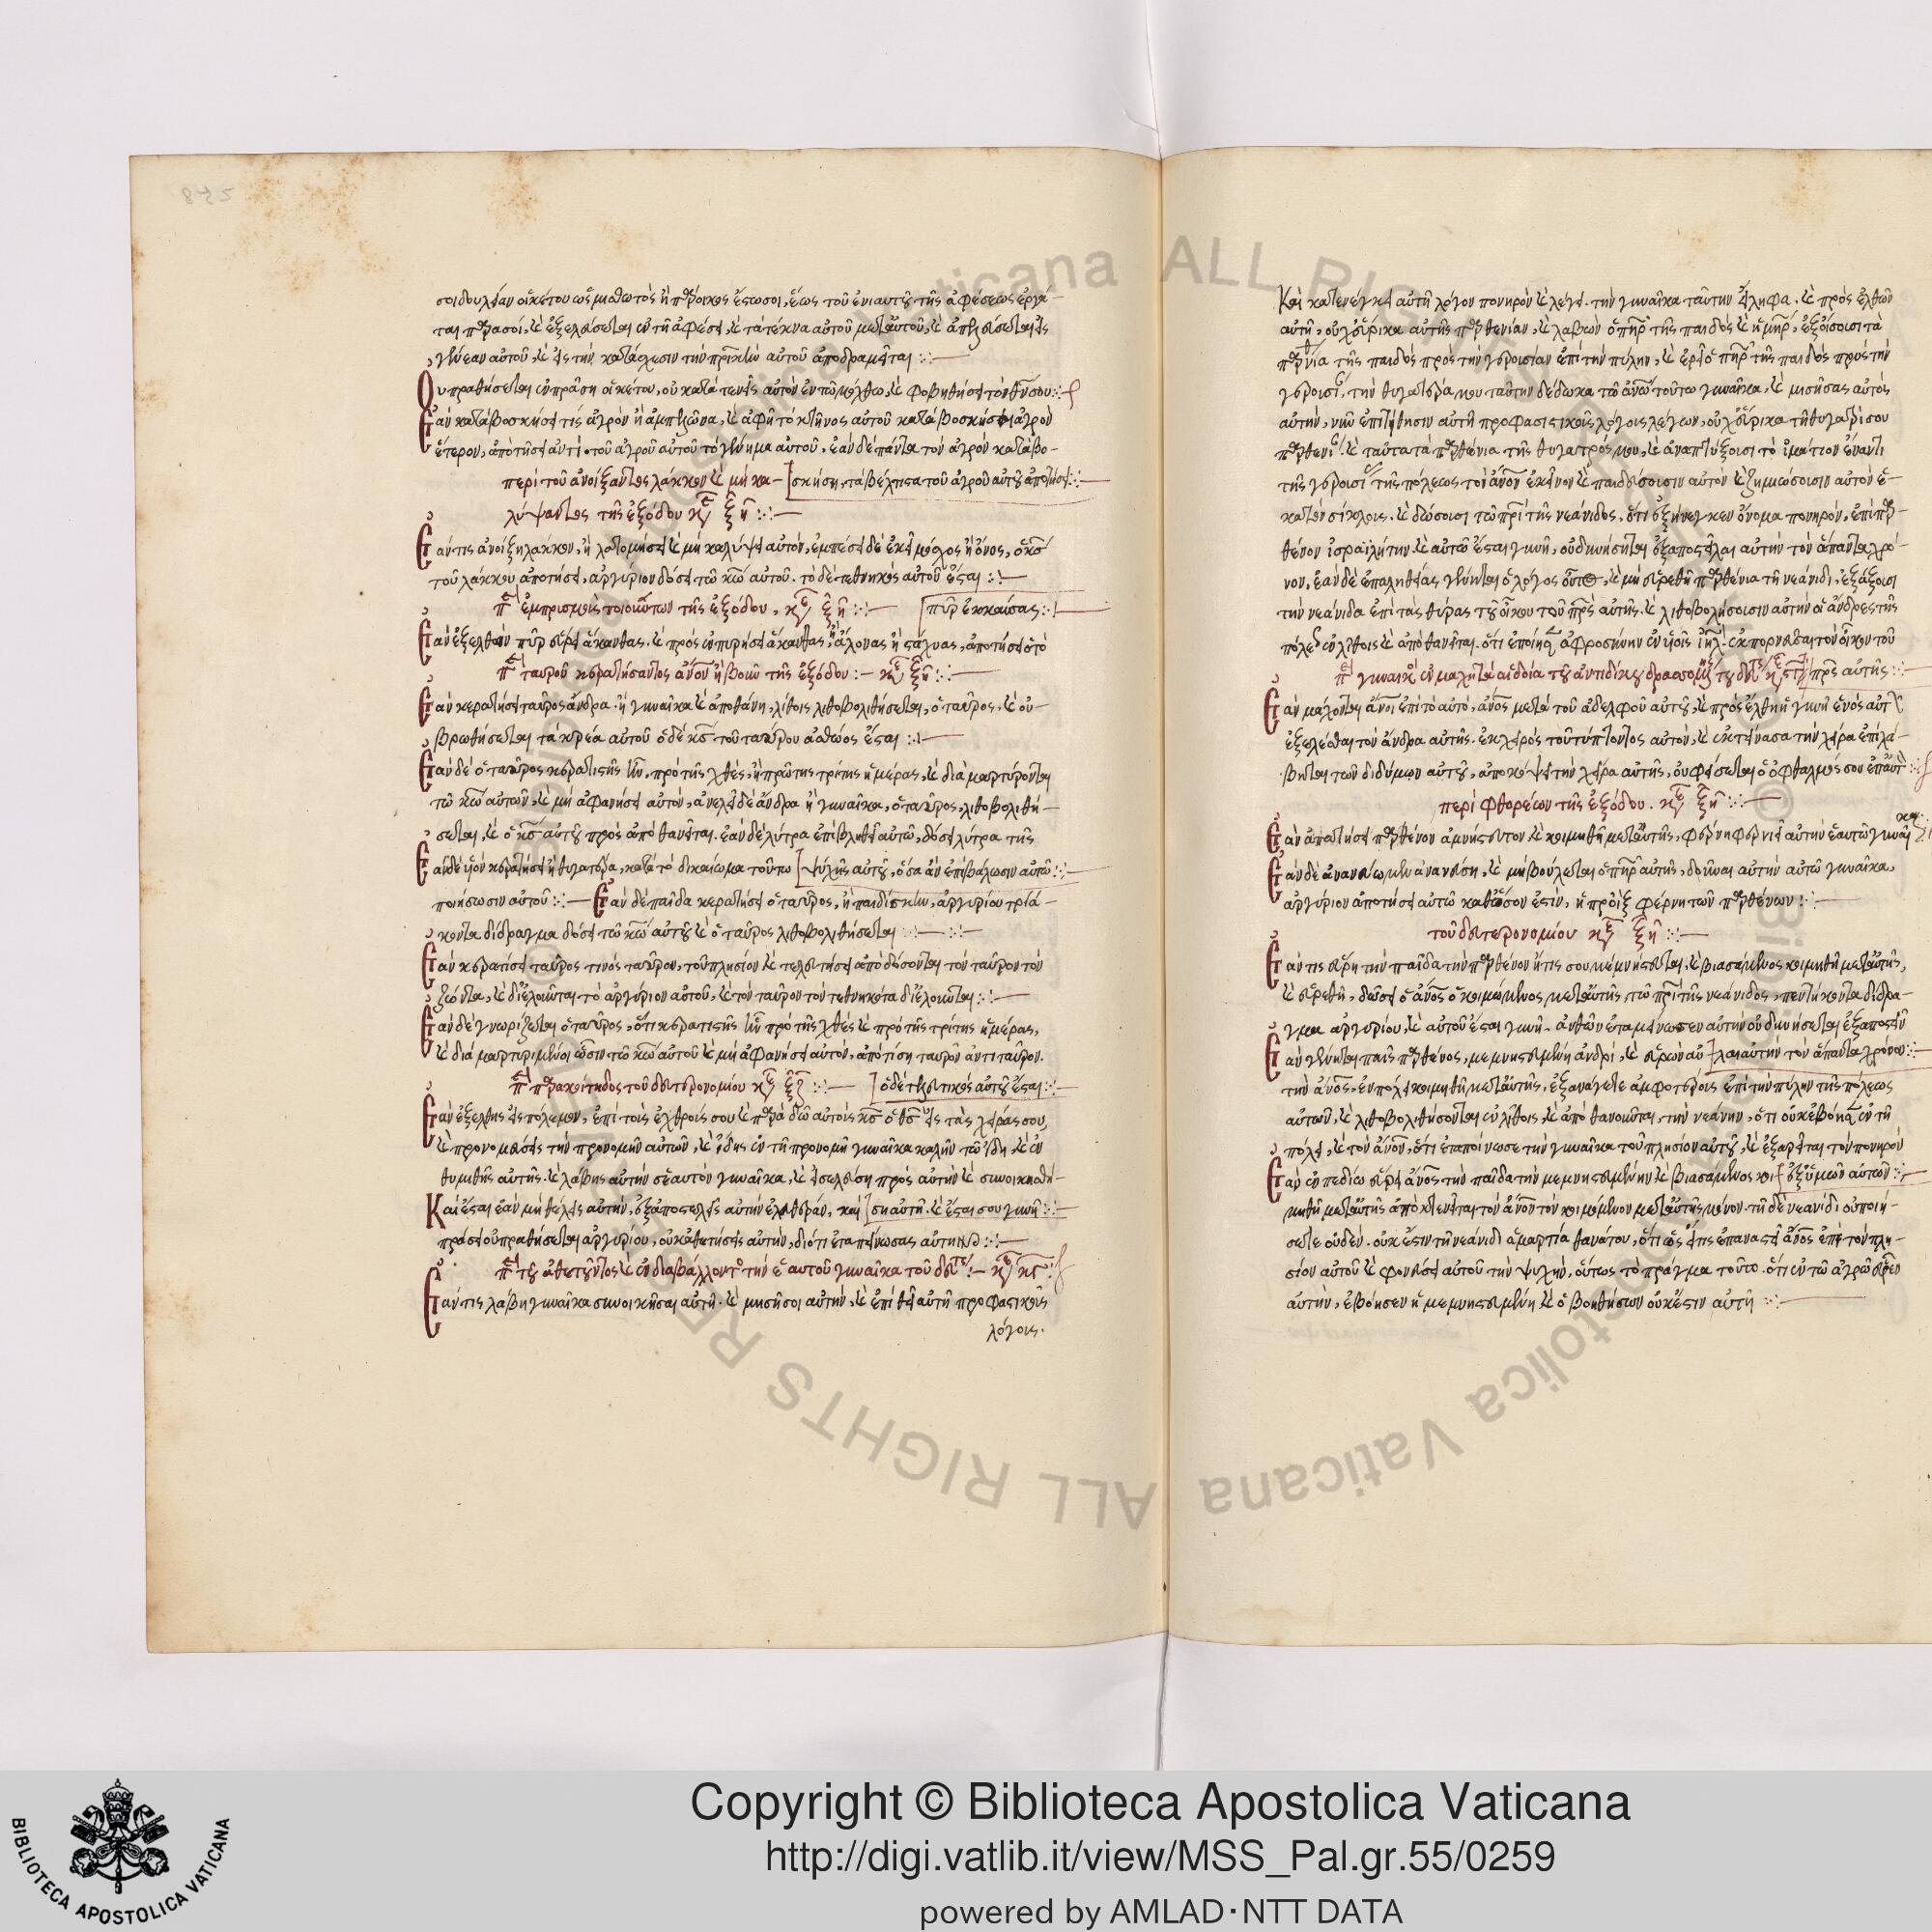 σοι δουλείαν οἰκέτου ὡς μισθωτὸς ἢ πάροικος ἔστω σοι, ἕως τοῦ ἐνιαυτοῦ τῆς ἀφέσεως ἐργᾶ-
ται παρὰ σοί, καὶ ἐξελεύσεται ἐν τῇ ἀφέσει, καὶ τὰ τέκνα αὐτοῦ μετ' αὐτοῦ, καὶ ἀπελεύσεται εἰς
γενεὰν αὐτοῦ, καὶ εἰς τὴν κατάσχεσιν τὴν πρικὴν αὐτοῦ ἀποδραμεῖται
Οὐ πραθήσεται ἐν πράσει οἰκέτου, οὐ κατατενεῖς αὐτὸν ἐν τῷ μόχθῳ, καὶ φοβηθήσει τὸν θν σου
Ἐὰν καταβοσκήσει τίς ἀγρὸν ἢ ἀμπελῶνα, καὶ ἀφῇ τὸ κτῆνος αὐτοῦ καταβοσκῆσαι ἀγρὸν
ἕτερον, ἀποτήσει ἀντὶ τοῦ ἀγροῦ αὐτοῦ τὸ γένημα αὐτοῦ. ἐὰν δὲ πάντα τὸν ἀγρὸν καταβο-
περὶ τοῦ ἀνοίξαντος λάκκον καὶ μὴ κα- [σκήση, τὰ βέλτιστα τοῦ ἀγροῦ αὐτοῦ ἀποτήσει
λύψαντος τῆς ἐξόδου
Ἐάν τις ἀνοίξη λάκκον, ἢ λατομήσει καὶ μὴ καλύψει αὐτὸν, ἐμπέσει δὲ ἐκεῖ μόσχος ἢ ὄνος, ὁ κς
τοῦ λάκκου ἀποτήσει, ἀργύριον δόσει τῷ κω αὐτοῦ. τὸ δὲ τεθνηκὸς αὐτοῦ ἔσται
ἐμπρισμοῖς τοιούτων τῆς ἐξόδου, [πῦρ ἐκκαύσας
Ἐὰν ἐξελθὸν πῦρ εὕρει ἄκανθας. καὶ προσενπυρήσει ἄκανθας, ἢ ἅλωνας ἢ στάχυας, ἀποτήσει ὁ τὸ
ταύρου κερατήσαντος ἄνον ἢ βοῦν τῆς ἐξόδου
Ἐὰν κερατήσει ταῦρος ἄνδρα ἢ γυναῖκα καὶ ἀποθάνη, λίθοις λιθοβοληθήσεται, ὁ ταῦρος. καὶ οὐ-
βρωθήσεται τὰ κρέα αὐτοῦ ὁ δὲ κς τοῦ ταύρου ἀθῶος ἔσται
Ἐὰν δὲ ὁ ταῦρος κερατιστὴς ἦν, πρὸ τῆς χθὲς, ἢ πρώτης τρίτης ἡμέρας, καὶ διαμαρτύρονται
τῷ κω αὐτῶν, καὶ μὴ ἀφανήσει αὐτὸν, ἀνελεῖ δὲ ἄνδρα ἢ γυναῖκα, ὁ ταῦρος, λιθοβοληθή-
σεται, καὶ ὁ κς αὐτοῦ προσαποθανεῖται. ἐὰν δὲ λύτρα ἐπιβληθεῖ αὐτῶ, δόσει λύτρα τῆς
Ἐὰν δὲ υἱὸν κερατήσει ἢ θυγατέρα, κατὰ τὸ δικαίωμα τοῦτο [ψυχῆς αὐτοῦ, ὅσα ἂν ἐπιβάλωσιν αὐτῶ
ποιήσωσιν αὐτοῦ Ἐὰν δὲ παῖδα κερατήσει ὁ ταῦρος, ἢ παιδίσκην, ἀργυρίου τριά-
κοντα δίδραγμα δόσει τῷ κω αὐτοῦ καὶ ὁ ταῦρος λιθοβοληθήσεται
Ἐὰν κερατίσει ταῦρος τινὸς ταῦρον, τοῦ πλησίον καὶ τελευτήσει ἀποδόσονται τὸν ταῦρον τὸν
ζῶντα, καὶ διελοῦνται τὸ ἀργύριον αὐτοῦ, καὶ τὸν ταῦρον τὸν τεθνηκότα διελοῦνται
Ἐὰν δὲ γνωρίζεται ὁ ταῦρος, ὅτι κερατιστής ἦν πρὸ τῆς χθὲς καὶ πρὸ τῆς τρίτης ἡμέρας,
καὶ διαμαρτυριμένοι ὦσιν τῷ κω αὐτοῦ καὶ μὴ ἀφανήσει αὐτὸν, ἀποτίση ταῦρον ἀντὶ ταύρου.
τοῦ δευτερονομίου [ὁ δὲ τελευτικὸς αὐτοῦ ἔσται
Ἐὰν ἐξέλθης εἰς πόλεμον, ἐπὶ τοὺς ἐχθρούς σου καὶ παραδῶ αὐτοὺς κς ὁ θς εἰς τὰς χεῖράς σου,
καὶ προνομεύσεις τὴν προνομὴν αὐτῶν, καὶ ἴδης ἐν τῇ προνομῇ γυναῖκα καλὴν τῷ ἴδη, καὶ ἐν
θυμηθῇς αὐτῆς. καὶ λάβης αὐτὴν σεαυτὸν γυναῖκα, καὶ εἰσελεύση πρὸς αὐτὴν καὶ συνοικηθή-
Καὶ ἔσται ἐὰν μὴ θέλεις αὐτὴν, ἐξαποστελεῖς αὐτὴν ἐλευθέραν, καὶ [ση αὐτῇ. καὶ ἔσται σου γυνὴ
πράσει οὐ πραθήσεται ἀργυρίου, οὐκ ἀθετήσεις αὐτὴν, διότι ἐταπείνωσας αὐτην
τοῦ ἀθετοῦντος καὶ ἐνδιαβάλλοντος τὴν ἑαυτοῦ γυναῖκα τοῦ δευτ
Ἐάν τις λάβη γυναῖκα συνοικῆσαι αὐτῇ. καὶ μησήσοι αὐτὴν, καὶ ἐπιθεῖ αὐτῇ προφασικοὺς
λόγους.
Καὶ κατενέγκει αὐτῇ λόγον πονηρὸν καὶ λέγει. τὴν γυναῖκα ταύτην εἴληφα, καὶ προσελθὼν
αὐτῇ, οὐχ εὕρικα αὐτῆς παρθενίαν, καὶ λαβὼν ὁ πηρ τῆς παιδὸς καὶ ἡ μηρ, ἐξοίσουσι τὰ
παρθένια τῆς παιδὸς πρὸς τὴν γερουσίαν ἐπὶ τὴν πύλην, καὶ ἐρεῖ ὁ πηρ τῆς παιδὸς πρὸς τὴν
γερουσί, τὴν θυγατέρα μου ταύτην δέδωκα τῷ ἀνω τούτω γυναῖκα, καὶ μισήσας αὐτὸς
αὐτὴν, νῦν ἐπιτήθησιν αὐτῇ προφασιστικοὺς λόγους λέγων, οὐχ εὕρικα τῇ θυγατρί σου
παρθενι καὶ ταῦτα τὰ παρθένια τῆς θυγατρός μου, καὶ ἀναπτύξουσι τὸ ἱμάτιον ἔναντι
τῆς γερουσί τῆς πόλεως τὸν ἄνον ἐκεῖνον καὶ παιδεύσουσιν αὐτὸν καὶ ζημιώσουσιν αὐτὸν ἑ-
κατὸν σίκλους. καὶ δώσουσι τῷ πρὶ τῆς νεάνιδος, ὅτι ἐξήνεγκεν ὄνομα πονηρὸν, ἐπὶ παρ
θένον ἰσραϊλήτην καὶ αὐτῶ ἔσται γυνὴ, οὐ δυνήσηται ἐξαποστεῖλαι αὐτὴν τὸν ἅπαντα χρό-
νον, ἐὰν δὲ ἐπαληθείας γένηται ὁ λόγος οὗτος, καὶ μὴ εὑρεθῇ παρθένια τῇ νεάνιδι, ἐξάξουσι
τὴν νεάνιδα ἐπὶ τὰς θύρας τοῦ οἴκου τοῦ πρς αὐτῆς, καὶ λιθοβολήσουσιν αὐτὴν οἱ ἄνδρες τῆς
πόλε ἐν λίθοις καὶ ἀποθανεῖται. ὅτι ἐποίησ ἀφροσύνην ἐν υἱοῖς ιηλ. ἐκπορνεῦσαι τὸν οἶκον τοῦ
πρς αὐτῆς
Ἐὰν μάχονται ἄνοι ἐπὶ τὸ αὐτὸ, ἄνος μετὰ τοῦ ἀδελφοῦ αὐτοῦ, καὶ προσέλθη ἡ γυνὴ ἑνὸς αὐτ
ἐξελέσθαι τὸν ἄνδρα αὐτῆς. ἐκ χειρὸς τοῦ τύπτοντος αὐτὸν, καὶ ἐκτείνασα τὴν χεῖρα ἐπιλά-
βηται τῶν διδύμων αὐτοῦ, ἀποκόψει τὴν χεῖρα αὐτῆς, οὐ φείσεται ὁ ὀφθαλμός σου ἐπ' αὐτ
περὶ φθορέων τῆς ἐξόδου.
Ἐὰν ἀπατήσει παρθένον ἀμνήστευτον καὶ κοιμηθῇ μετ' αὐτῆς, φερνῇ φερνιεῖ αὐτὴν ἑαυτῶ γυναῖ
κα
Ἐὰν δὲ ἀνανεύων ἀνανεύση, καὶ μὴ βούλεται ὁ πηρ αὐτῆς, δοῦναι αὐτὴν αὐτῶ γυναῖκα,
ἀργύριον ἀποτήσει αὐτῶ καθόσον ἐστὶν, ἡ προὶξ φέρνη τῶν παρθένων
τοῦ δευτερονομίου
Ἐάν τις εὕρη τὴν παῖδα τὴν παρθένον ἥτις οὐ μεμνήστευται. καὶ βιασάμενος κοιμηθῇ μετ' αὐτῆς,
καὶ εὑρεθῇ, δώσει ὁ ἄνος ὁ κοιμώμενος μετ' αὐτῆς, τῷ πρὶ τῆς νεάνιδος, πεντήκοντα δίδρα-
γμα ἀργυρίου, καὶ αὐτοῦ ἔσται γυνή. ἀνθ' ὧν ἐταπείνωσεν αὐτὴν οὐ δυνήσεται ἐξαποστεῖ
Ἐὰν γένηται παῖς παρθένος, μεμνηστευμένη ἀνδρὶ, καὶ εὑρὼν αὐ [λαι αὐτὴν τὸν ἅπαντα χρόνον
τὴν ἄνος, ἐν πόλει κοιμηθῇ μετ' αὐτῆς, ἐξανάγετε ἀμφοτέρους ἐπὶ τὴν πύλην τῆς πόλεως
αὐτῶν, καὶ λιθοβοληθήσονται ἐν λίθοις, καὶ ἀποθανοῦνται, τὴν νεάνην, ὅτι οὐκ ἐβόησ ἐν τῇ
πόλει, καὶ τὸν ἄνον, ὅτι ἐταποίνωσε τὴν γυναῖκα τοῦ πλησίον αὐτοῦ, καὶ ἐξαρεῖται τὸν πονηρὸν
Ἐὰν ἐν πεδίω εὕρει ἄνος τὴν παῖδα τὴν μεμνηστευμένην καὶ βιασάμενος κοι [ἐξ ὑμῶν αὐτῶν
μηθῇ μετ' αὐτῆς ἀποκτενεῖται τὸν ἄνον τὸν κοιμόμενον μετ' αὐτῆς μόνον. τῇ δὲ νεάνιδι οὐ ποιή-
σετε οὐδέν. οὐκ ἔστιν τῇ νεάνιδι ἁμαρτία θανάτου, ὅτι ὡς εἴ τις ἐπαναστεῖ ἄνος ἐπὶ τὸν πλη-
σίον αὐτοῦ καὶ φονεύσει αὐτοῦ τὴν ψυχὴν, οὕτως τὸ πρᾶγμα τοῦτο. ὅτι ἐν τῷ ἀγρῶ εὗρεν
αὐτὴν, ἐβόησεν ἡ μεμνηστευμένη καὶ ὁ βοηθήσων οὐκ ἔστιν αὐτῇ
Copyright © Biblioteca Apostolica Vaticana
http://digi.vatlib.it/view/MSS_Pal.gr.55/0259
powered by AMLAD·NTT DATA
BIBLIOTECA APOSTOLICA VATICANA